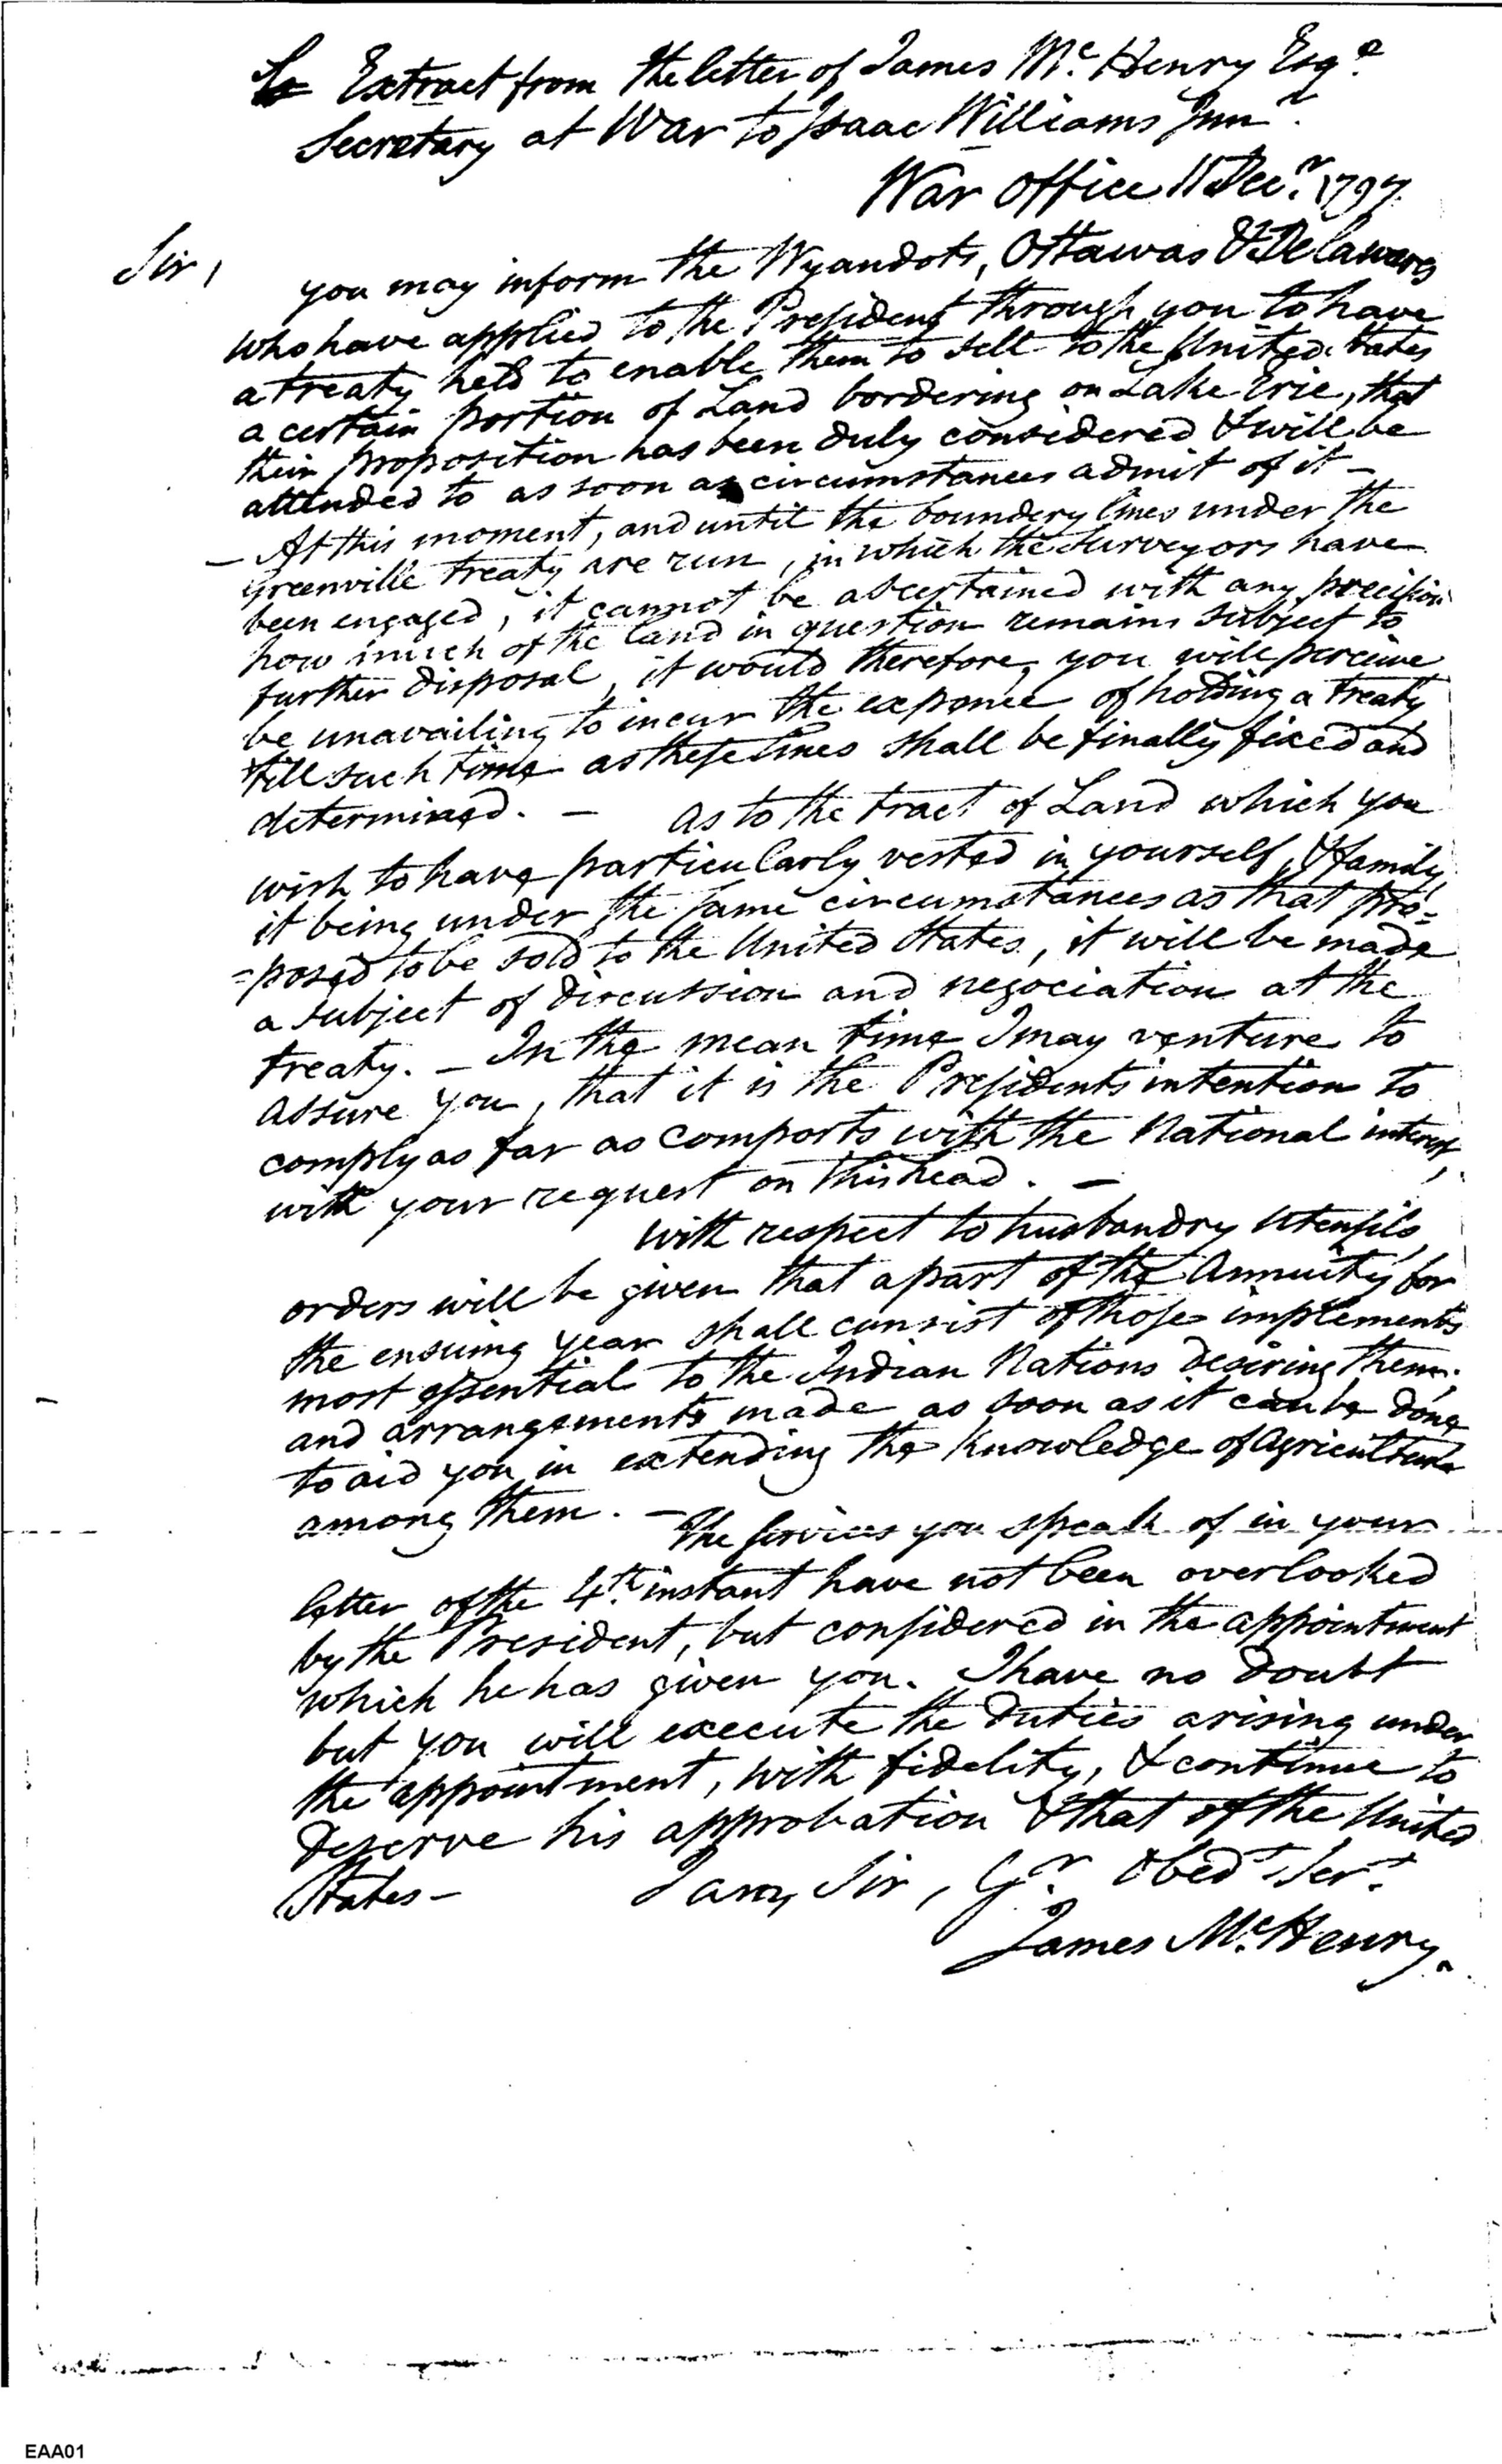 Extract from the letter of James Mc. Henry Esqe.
Secretary at War to Isaac Williams Junr.
War Office 11 Decr. 1797.
Sir,
you may inform the Wyandots, Ottawas & Delawares
who have applied to the President through you to have
a treaty held to enable them to sell to the United States
a certain portion of Land bordering on Lake Erie, that
their proposition has been duly considered & will be
attended to as soon as circumstances admit of it –
– At this moment, and until the boundery lines under the
Greenville treaty are run, in which the Surveyors have
been engaged, it cannot be ascertained with any precision
how much of the land in question remains subject to
further disposal, it would therefore, you will perceive
be unavailing to incur the expence of holding a treaty
till such time as these lines shall be finally fixed and
determined. – As to the tract of Land which you
wish to have particularly vested in yourself, & family,
it being under the same circumstances as that pro=
=posed to be sold to the United States, it will be made
a subject of discussion and negociation at the
treaty. – In the mean time I may venture to
assure you, that it is the Presidents intention to
comply as far as comports with the National interest,
with your request on this head. –
With respect to husbandry utensils,
orders will be given that a part of the Annuity for
the ensuing year shall consist of those implements
most essential to the Indian Nations desiring them;
and arrangements made as soon as it can be done
to aid you in extending the knowledge of agriculture
among them. –
The services you speak of in your
letter of the 4th. instant have not been overlooked
by the President, but considered in the appointment
which he has given you. I have no doubt
but you will execute the duties arising under
the appointment, with fidelity, & continue to
deserve his approbation & that of the United
States – I am, Sir, Yr. Obedt. Servt.
James Mc.Henry.
EAA01